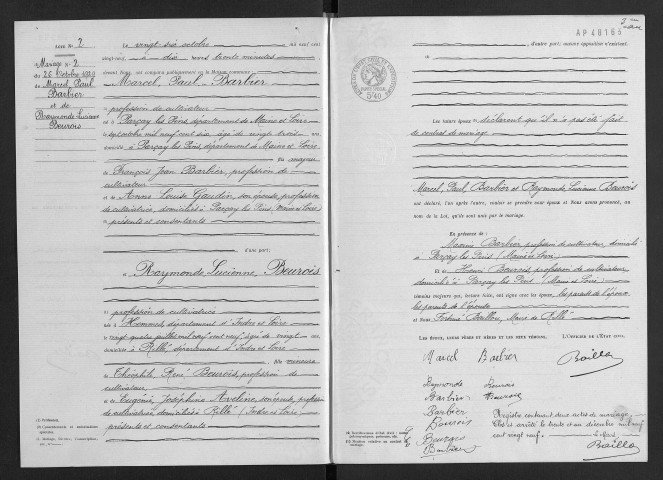 Acte N° 2
Mariage n° 2
du 26 Octobre 1929
de Marcel, Paul
Barbier
et de
Raymonde Lucienne
Beurois
Le vingt six octobre mil neuf cent
vingt neuf, à dix heures trente minutes
devant Nous, ont comparu publiquement en la Maison commune :
Marcel, Paul Barbier
profession de cultivateur
né à Parçay les Pins, département de Maine et Loire
le sept octobre mil neuf cent six, âgé de vingt trois ans,
domicilié à Parçay les Pins, département de Maine et Loire
fils majeur
de François Jean Barbier, profession de
cultivateur
et de Anne Louise Gaudin, son épouse, profession
de cultivatrice, domiciliés à Parçay les Pins, (Maine et Loire)
présents et consentants
d'une part;
et Raymonde Lucienne Beurois
profession de cultivatrice
née à Hommes, département d'Indre et Loire
le vingt quatre juillet mil neuf cent neuf, âgée de vingt ans,
domiciliée à Rillé, département d'Indre et Loire
fille mineure
de Théophile René Beurois, profession de
cultivateur
et de Eugénie Joséphine Aveline, son épouse, profession
de cultivatrice, domiciliés à Rillé (Indre et Loire)
présents et consentants
AP 48165
d'autre part; aucune opposition n'existant.
5f40
Les futurs époux déclarent qu'il n'a pas été fait
de contrat de mariage
Marcel, Paul Barbier et Raymonde Lucienne Beurois
ont déclaré, l'un après l'autre, vouloir se prendre pour époux et Nous avons prononcé, au
nom de la Loi, qu'ils sont unis par le mariage.
En présence de : Maxime Barbier, profession de cultivateur, domicilié
à Parçay les Pins (Maine et Loire)
Et de Henri Beurois, profession de cultivateur
domicilié à Parçay les Pins (Maine et Loire)
témoins majeurs qui, lecture faite, ont signé avec les époux, les parents de l'époux
les parents de l'épouse
et Nous, Baillou, Maire de Rillé
LES ÉPOUX, LEURS PÈRES ET MÈRES ET LES DEUX TÉMOINS,
L'OFFICIER DE L'ÉTAT CIVIL,
Marcel Barbier
Baillou
Raymonde Beurois
Barbier
Barbier
Beurois
Beurois
Barbier
Registre contenant deux actes de mariage
Clos et arrêté le trente et un décembre mil neuf
cent vingt neuf.
Le Maire
Baillou